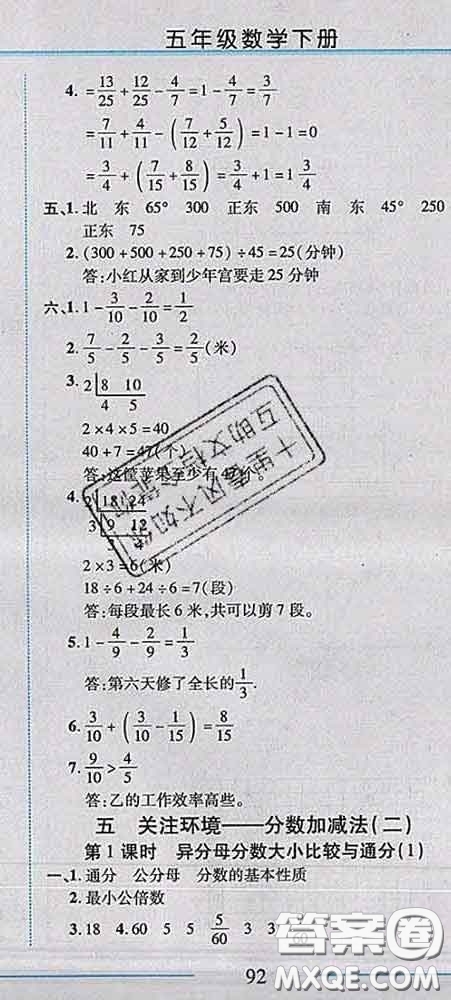 五年级数学下册
4. =13/25+12/25-4/7=1-4/7=3/7
=7/11+4/11-(7/12+5/12)=1-1=0
=3/4+(7/15+8/15)=3/4+1=1 3/4
五、1. 北 东 65° 300 正东 500 南 东 45° 250
正东 75
2. (300+500+250+75)÷45=25(分钟)
答:小红从家到少年宫要走25分钟
六、1. 1-3/10-2/10=1/2
2. 7/5-2/5-3/5=2/5(米)
3. 2 8 10
4 5
2×4×5=40
40+7=47(个)
答:这筐苹果至少有47个。
4. 2 18 24
3 9 12
3
2×3=6(米)
18÷6+24÷6=7(段)
答:每段最长6米,共可以剪7段。
5. 1-4/9-2/9=1/3
答:第六天修了全长的1/3.
6. 3/10+(3/10-1/15)=8/15
7. 9/10>4/5
答:乙的工作效率高些。
五 关注环境——分数加减法(二)
第1课时 异分母分数大小比较与通分(1)
一、1. 通分 公分母 分数的基本性质
2. 最小公倍数
3. 18 4. 60 5 5 5/60 3 3
92
十里春风不如你
互助文档
答案圈
MXQE.COM